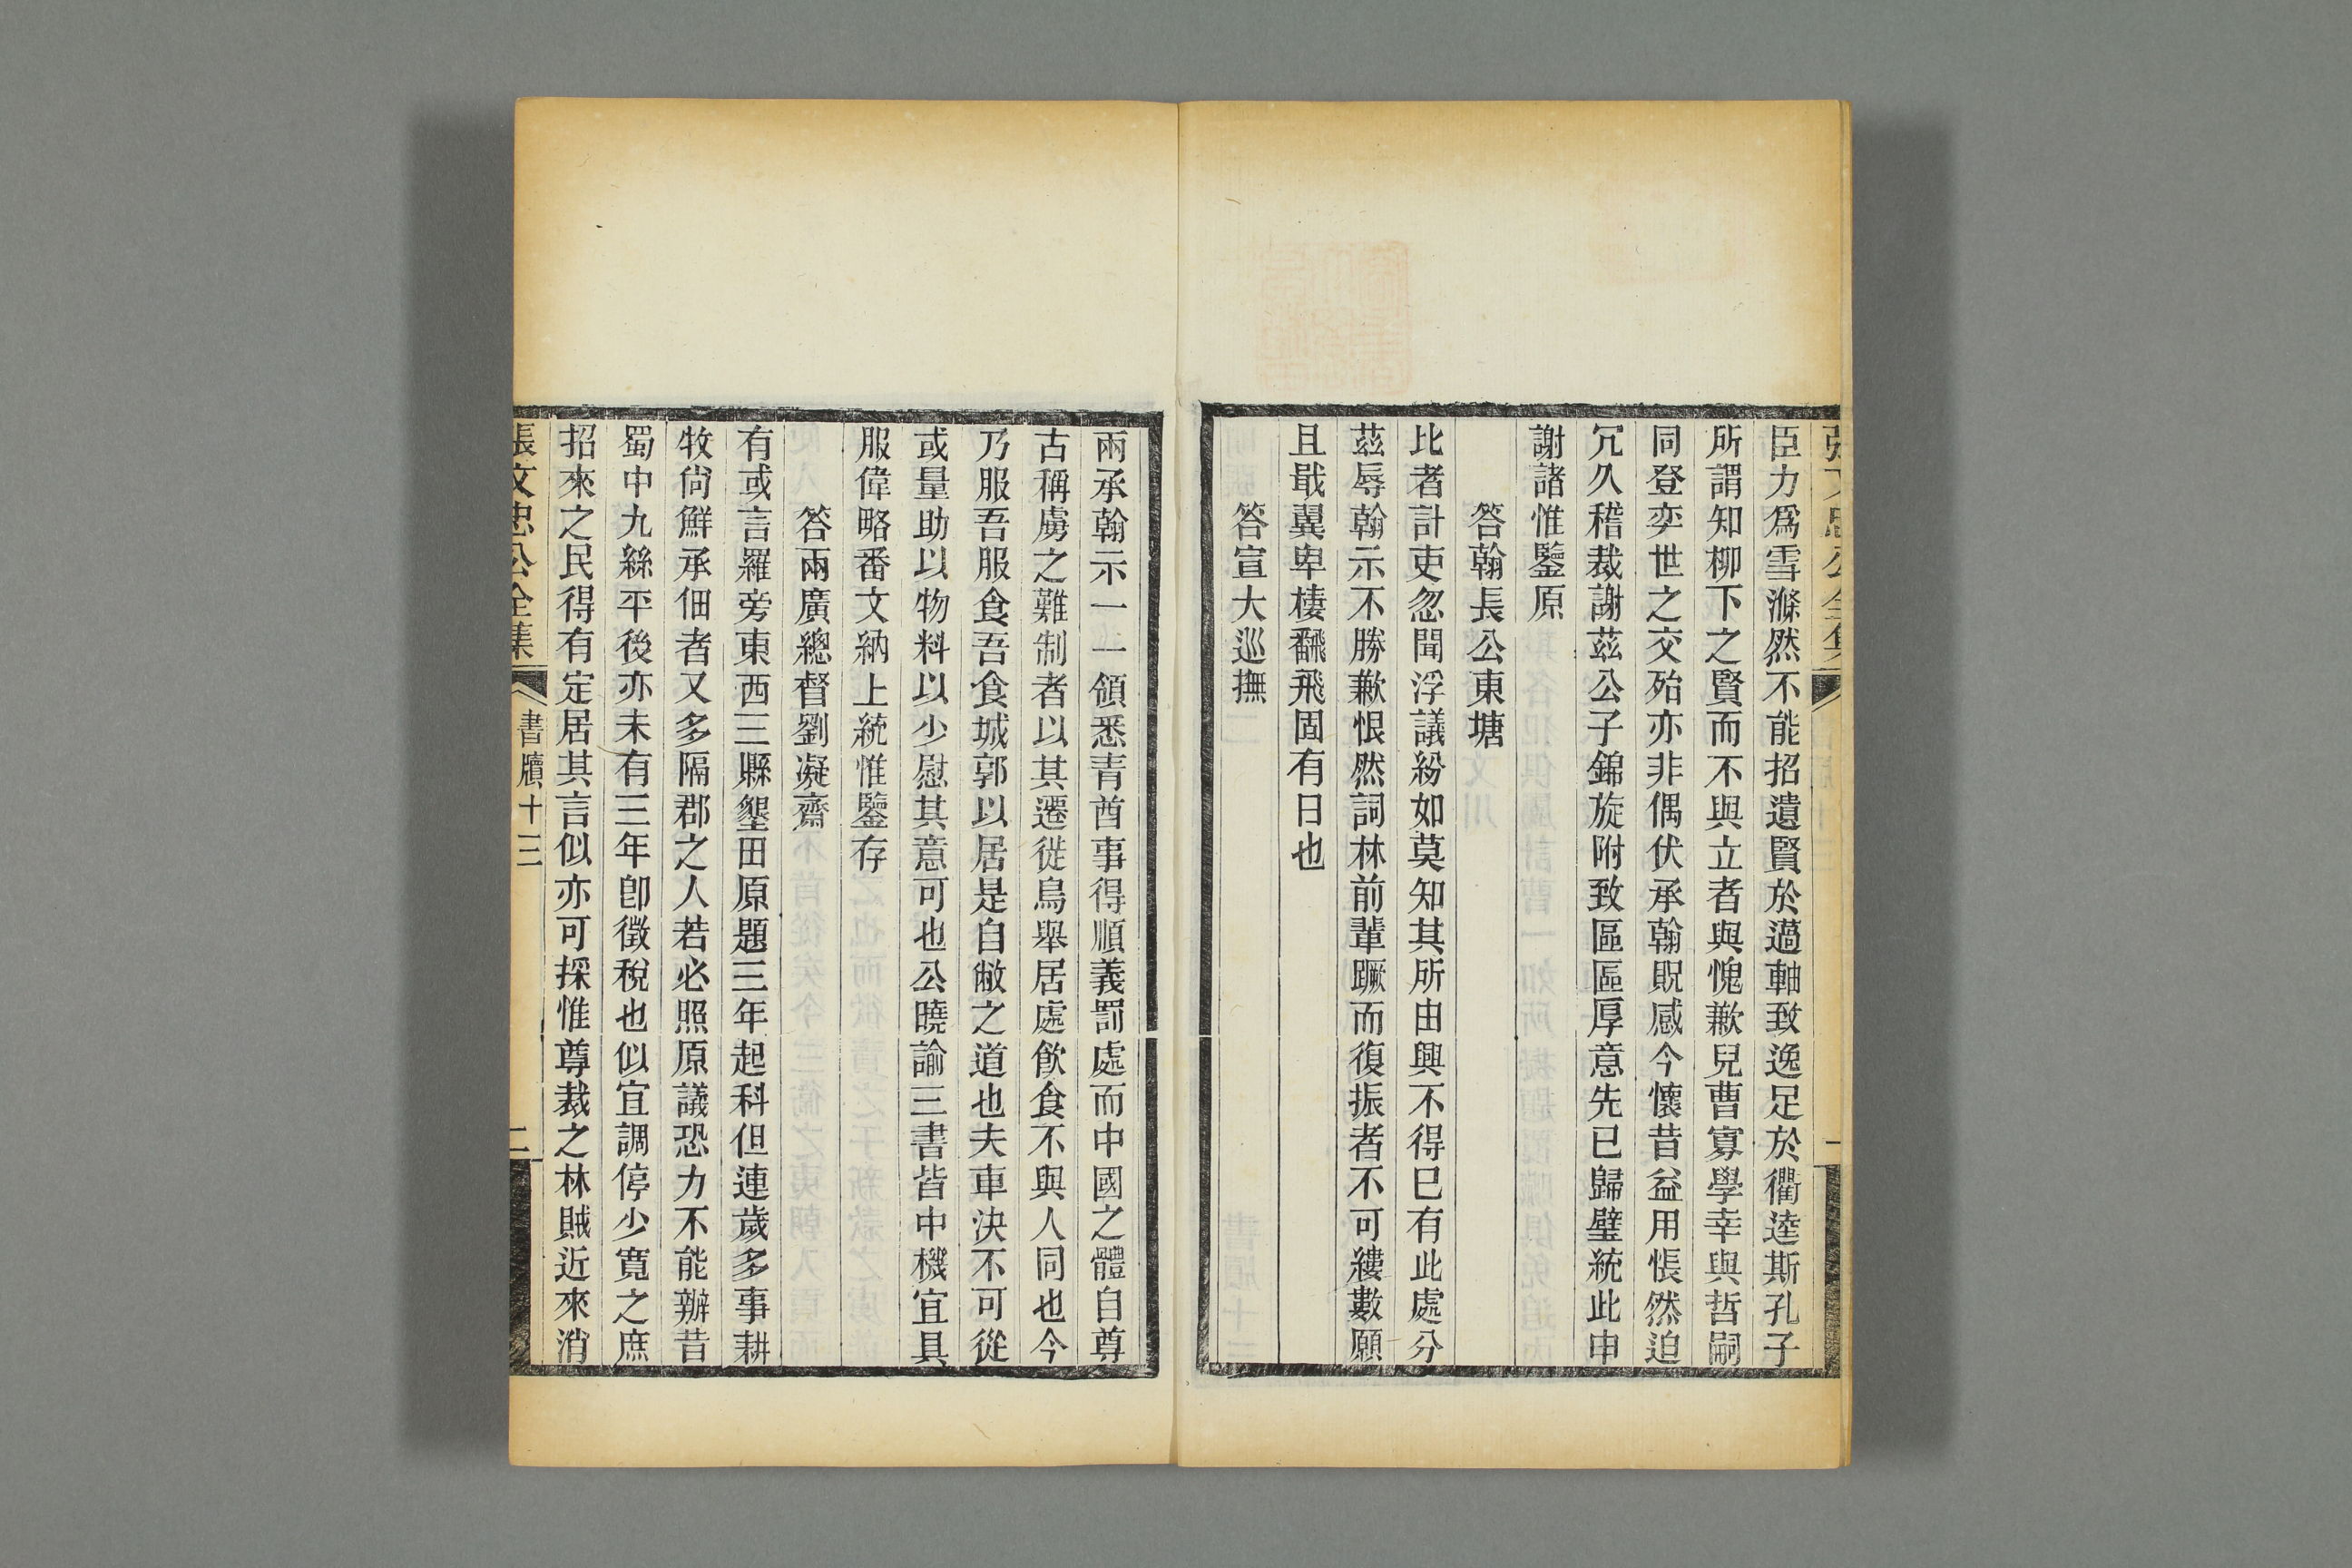 臣力爲雪滌然不能招遺賢於薖軸致逸足於衢逵斯孔子
所謂知柳下之賢而不與立者與愧歉兒曹寡學幸與哲嗣
同登奕世之交殆亦非偶伏承翰貺感今懷昔益用悵然迫
冗久稽裁謝茲公子錦旋附致區區厚意先已歸璧統此申
謝諸惟鑒原
答翰長公東塘
比者計吏忽聞浮議紛如莫知其所由興不得巳有此處分
茲辱翰示不勝歉恨然詞林前輩蹶而復振者不可縷數願
且戢翼卑棲飜飛固有日也
答宣大巡撫
兩承翰示一一領悉青酋事得順義罰處而中國之體自尊
古稱虜之難制者以其遷徙鳥舉居處飲食不與人同也今
乃服吾服食吾食城郭以居是自敝之道也夫車決不可從
或量助以物料以少慰其意可也公曉諭三書皆中機宜具
服偉略番文納上統惟鑒存
答兩廣總督劉凝齋
有或言羅旁東西三縣墾田原題三年起科但連歲多事耕
牧尙鮮承佃者又多隔郡之人若必照原議恐力不能辦昔
蜀中九絲平後亦未有三年卽徵稅也似宜調停少寬之庶
招來之民得有定居其言似亦可採惟尊裁之林賊近來消
張文忠公全集
書牘十三
二